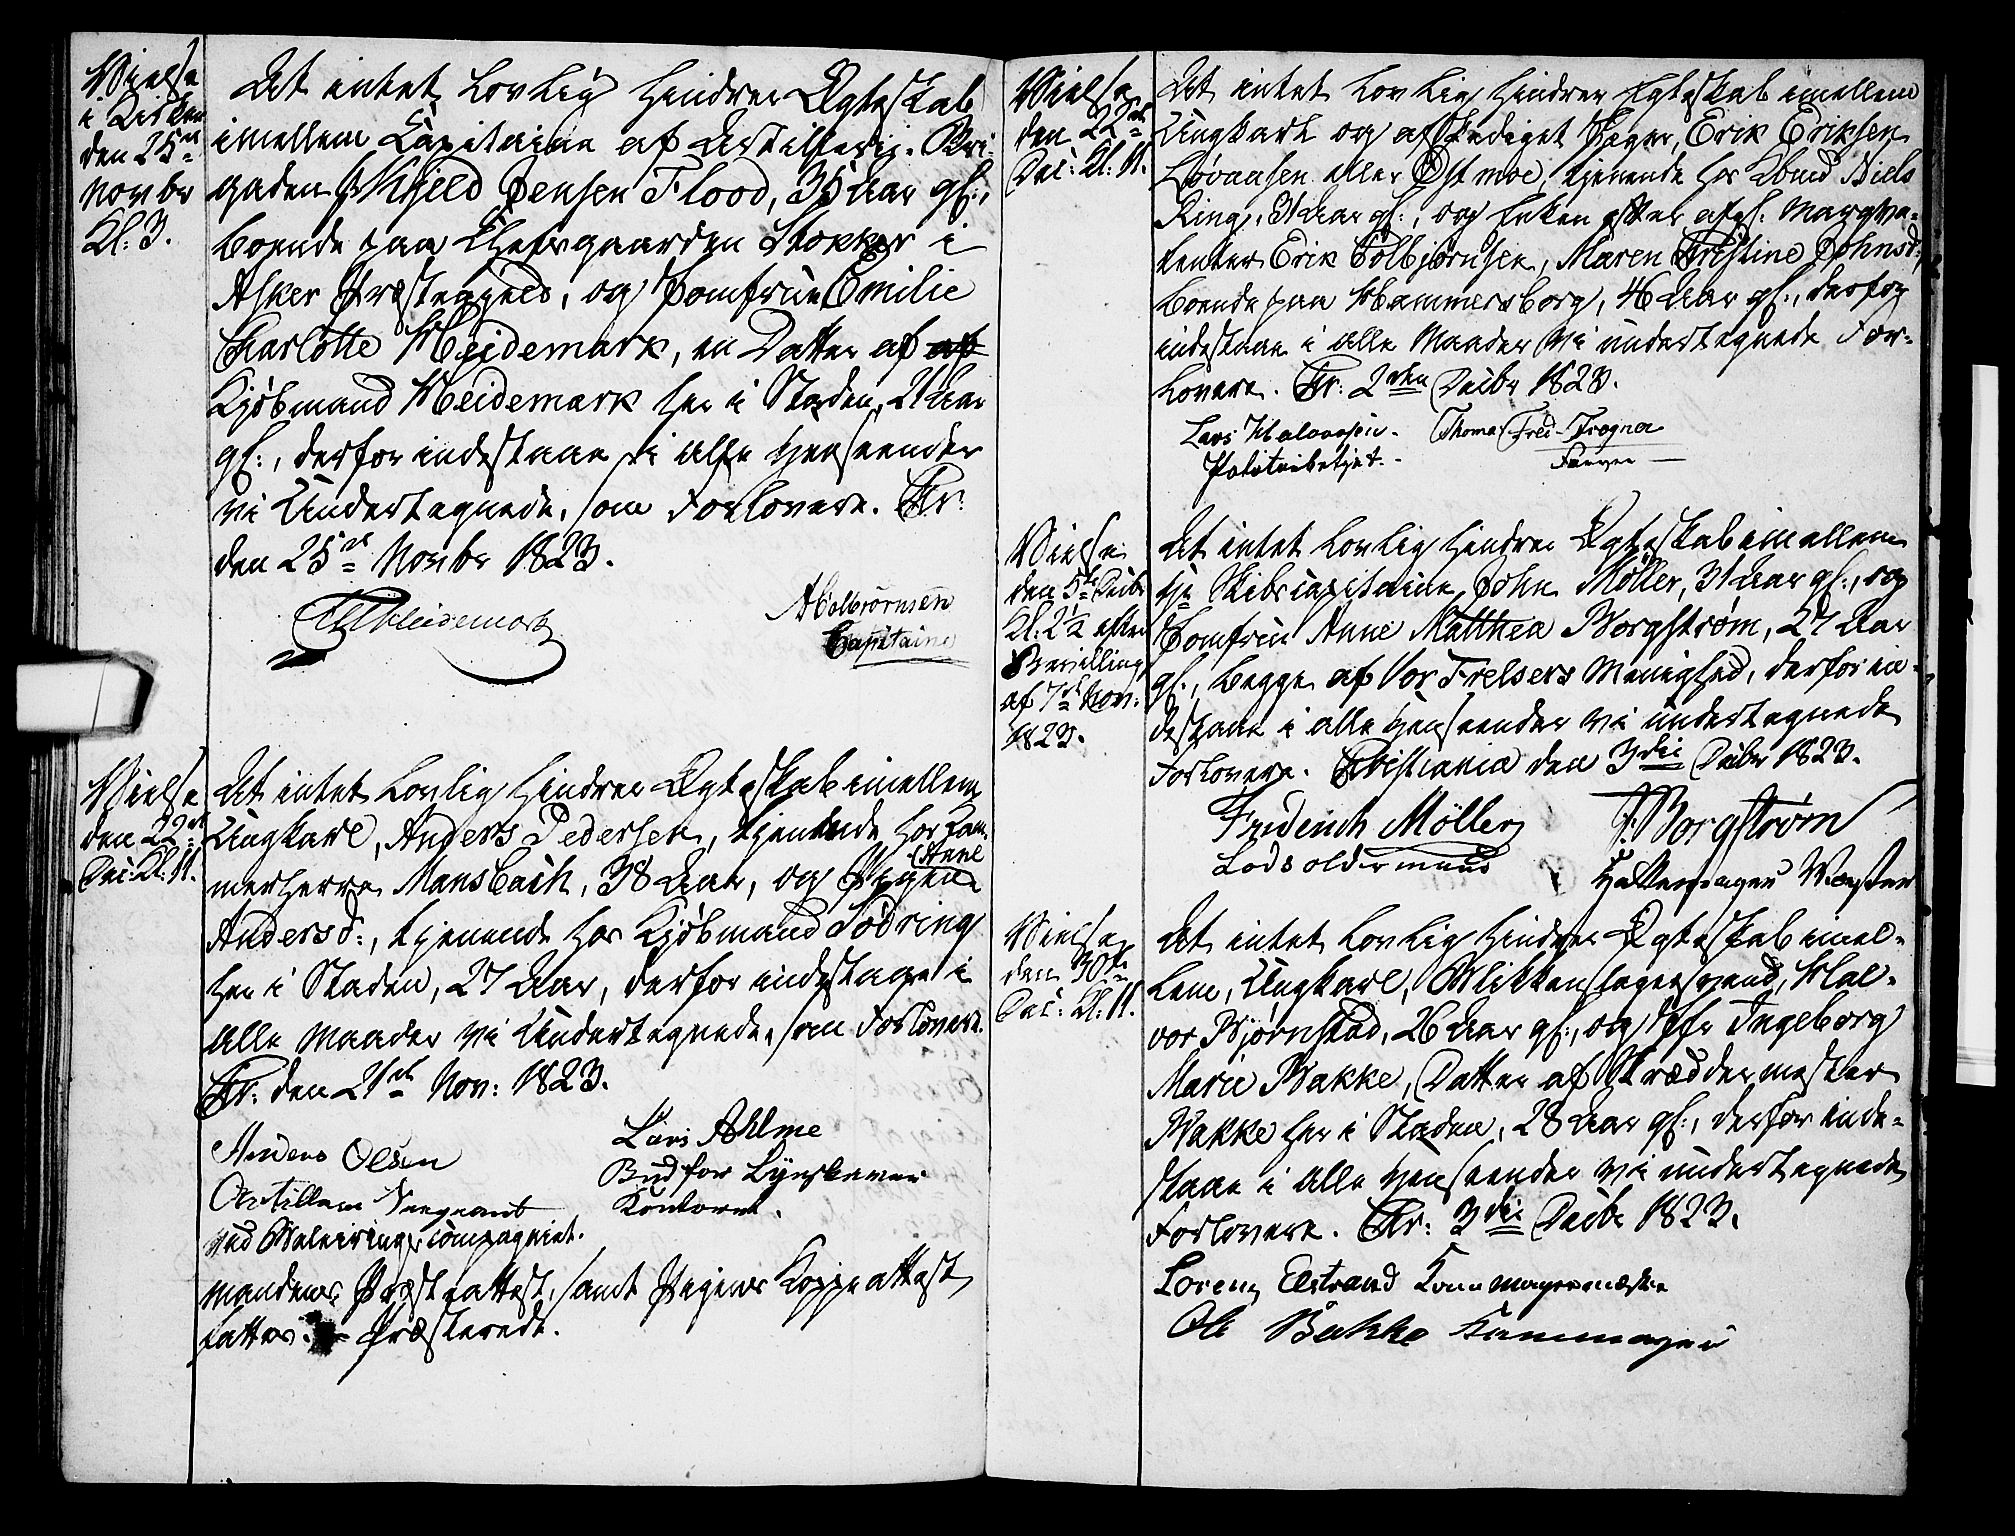 Vielse
i Kirken
den 25de
Novbr
Kl: 3.
At intet lovlig hindrer Ægteskab
imellem Capitaine af Artillerie-Bri-
gaden Kield Jensen Flood, 35 Aar gl:,
boende paa Chefsgaarden Stokker i
Asker Præstegjeld, og Jomfrue Emilie
Charlotte Heidemark, en Datter af af
Kjøbmand Heidemark her i Staden, 21 Aar
gl:, derfor indestaae i alle Henseender
vi Undertegnede, som Forlovere. Chr:
den 25de Novbr 1823.
Heidemark
Capitaine
Vielse
den 22de
Dec: Kl: 11.
At intet lovlig hindrer Ægteskab imellem
Ungkarl, Anders Pedersen, tjenende hos Kam-
merherre Mansbach, 38 Aar, og Pigen Anne
Andersd:, tjenende hos Kjøbmand Södring
her i Staden, 27 Aar, derfor indestaae i
alle Maader vi Undertegnede, som Forlovere.
Chr: den 21de Nov: 1823.
Anders Olsen
Artillerie Sergeant
ved compagniet.
Lars Ahlme
Bud for
Kontoret.
Mandens Præsteattest, samt Pigens Koppeattest
Præsterede.
Vielse
den 22de
Dec: Kl: 11.
At intet lovlig hindrer Ægteskab imellem
Ungkarl og afskediget Jæger, Erik Eriksen
Løvaasen eller Østmoe, tjenende hos Kbmd Niels
Ring, 31 Aar gl:, og Enken efter afgl: Marqve-
tenter Erik Tolbjørnsen, Maren Christine Johnsd:,
boende paa Hammersborg, 46 Aar gl:, derfor
indestaae i alle Maader vi undertegnede For-
lovere. Chr: 2den Decbr 1823.
Lars Halvorsen
Politiebetjent.
Thomas Fred. Trogner
Farver
Vielse
den 5te Decbr
Kl: 2½ efter
Bevilling
af 7de Nov:
1823.
At intet lovlig hindrer Ægteskab imellem
Hr Skibscapitaine John Möller, 31 Aar gl:, og
Jomfrue Anne Matthea Borgstrøm, 27 Aar
gl:, begge af Vor Frelsers Menighed, derfor in-
destaae i alle Henseender vi undertegnede
Forlovere. Christiania den 3die Decbr 1823.
Friderich Möller
Lodsoldermand
J. Borgstrøm
Hattemager Mester
Vielse
den 30te
Dec: Kl: 11.
At intet lovlig hindrer Ægteskab imel-
lem, Ungkarl, Blikkenslagersvend, Hal-
vor Bjørnstad, 26 Aar gl:, og Jfr Ingeborg
Marie Bakke, Datter af Skræddermester
Bakke her i Staden, 28 Aar gl:, derfor inde-
staae i alle Henseender vi undertegnede
Forlovere. Chr: 3die Decbr 1823.
Lorenz Elstrand
Ole Bakke Kammager